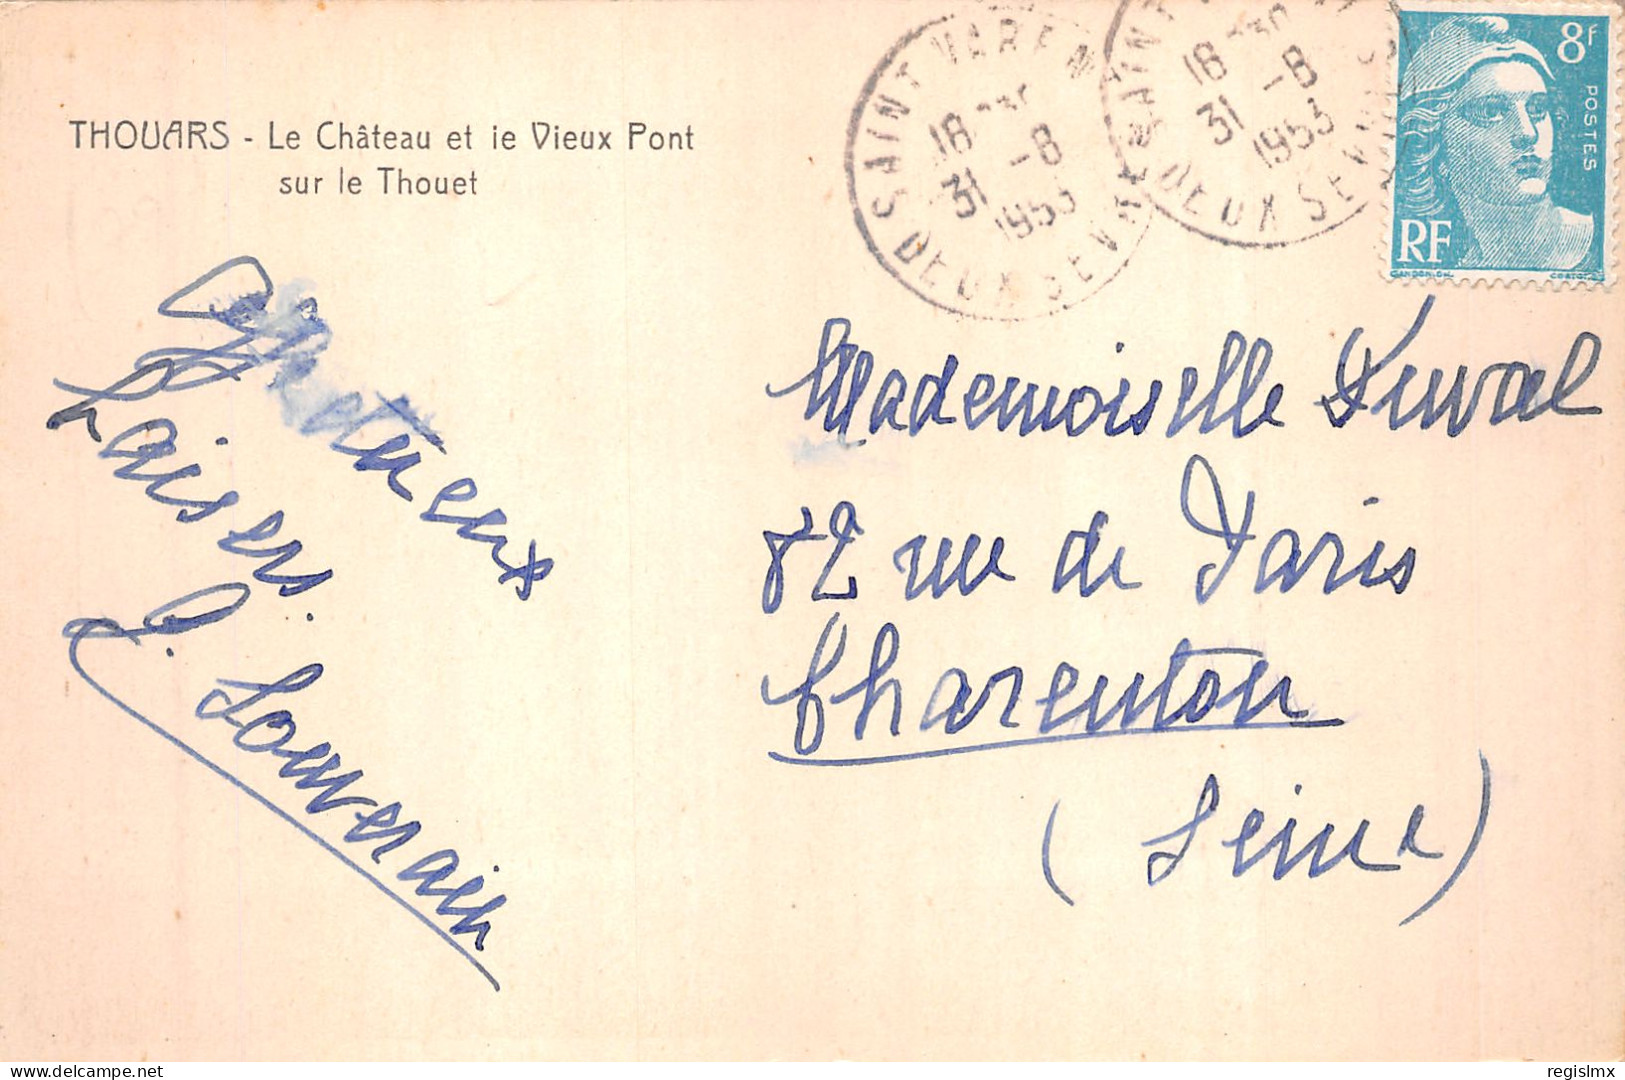 THOUARS - Le Château et ie Vieux Pont
sur le Thouet
SAINT VARENT
18 H30
31 -8
1953
DEUX SEVRES
SAINT
18 H30
31 -8
1953
DEUX SEVRES
8F
POSTES
RF
GANDON.DEL.
CORTOT.SC.
Affectueux
baisers.
S. Souverain
Mademoiselle Duval
82 rue de Paris
Charenton
(Seine)
delcampe.net
regislmx